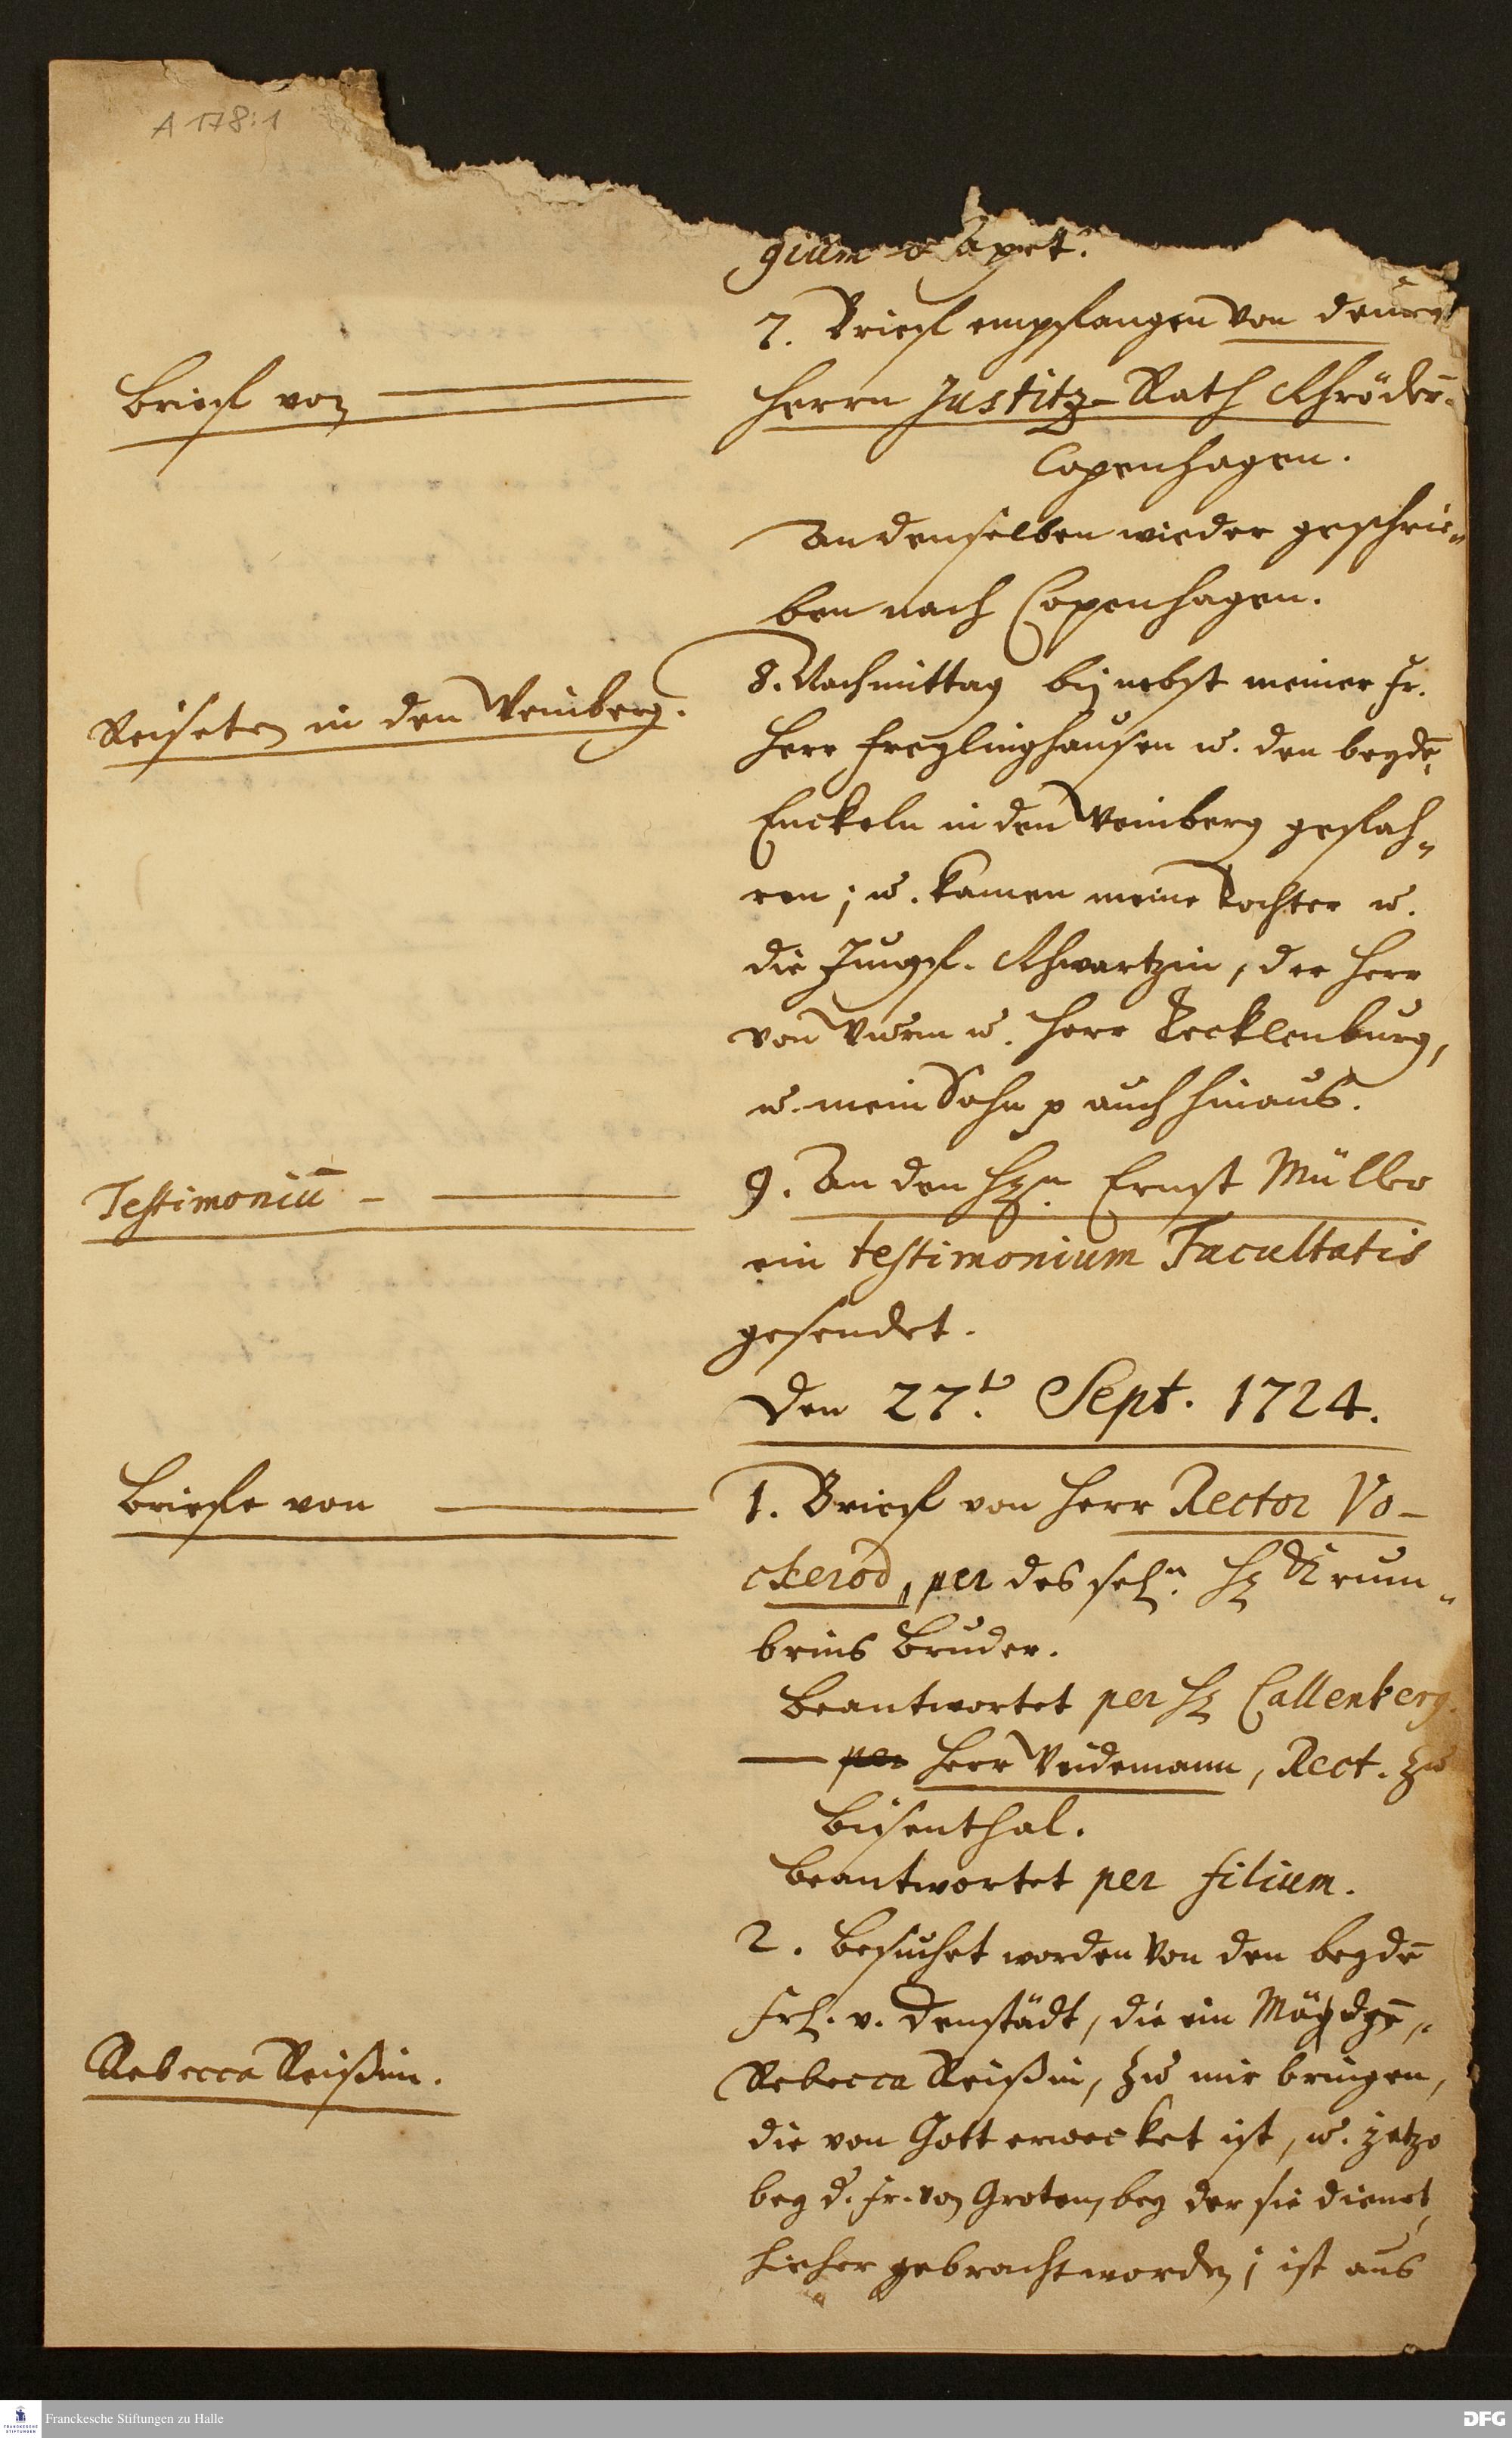 A 178:1
gium
7. Brieff empfangen von dem
Brieff von
Herrn Justitz-Rath Schröder.
Copenhagen.
an denselben wieder geschrie„
ben nach Copenhagen.
8. Nachmittag bin nebst meiner Fr.
Reiseten in den Weinberg.
Herr Freylinghausen u. den beyde
Enckeln in den Weinberg gefah„
ren; u. kamen meine Tochter u.
die Jungf. Schwartzin, der Herr
von Wurm u. Herr Tecklenburg,
u. mein Sohn p auch hinaus.
Testimoniū
9. An den H. Ernst Müller
ein testimonium Facultatis
gesendet.
Den 27t. Sept. 1724.
Brieffe von
1. Brieff von Herr Rector Vo-
ckerod, per des sel. H. Krum„
beins Bruder.
Beantwortet per H. Callenberg.
per Herr Weidemann, Rect. zu
Biisenthal.
Beantwortet per filium.
2. Besuchet worden von den beydē
Frl. v. Denstädt, die ein Mägdgē,
Rebecca Reißin.
Rebecca Reißin, zu mir bringen,
die von Gott erwecket ist, u. jetzo
bey d. Fr. von Groten, bey der sie dienet,
hieher gebracht worden; ist aus
FRANCKESCHE STIFTUNGEN
Franckesche Stiftungen zu Halle
DFG